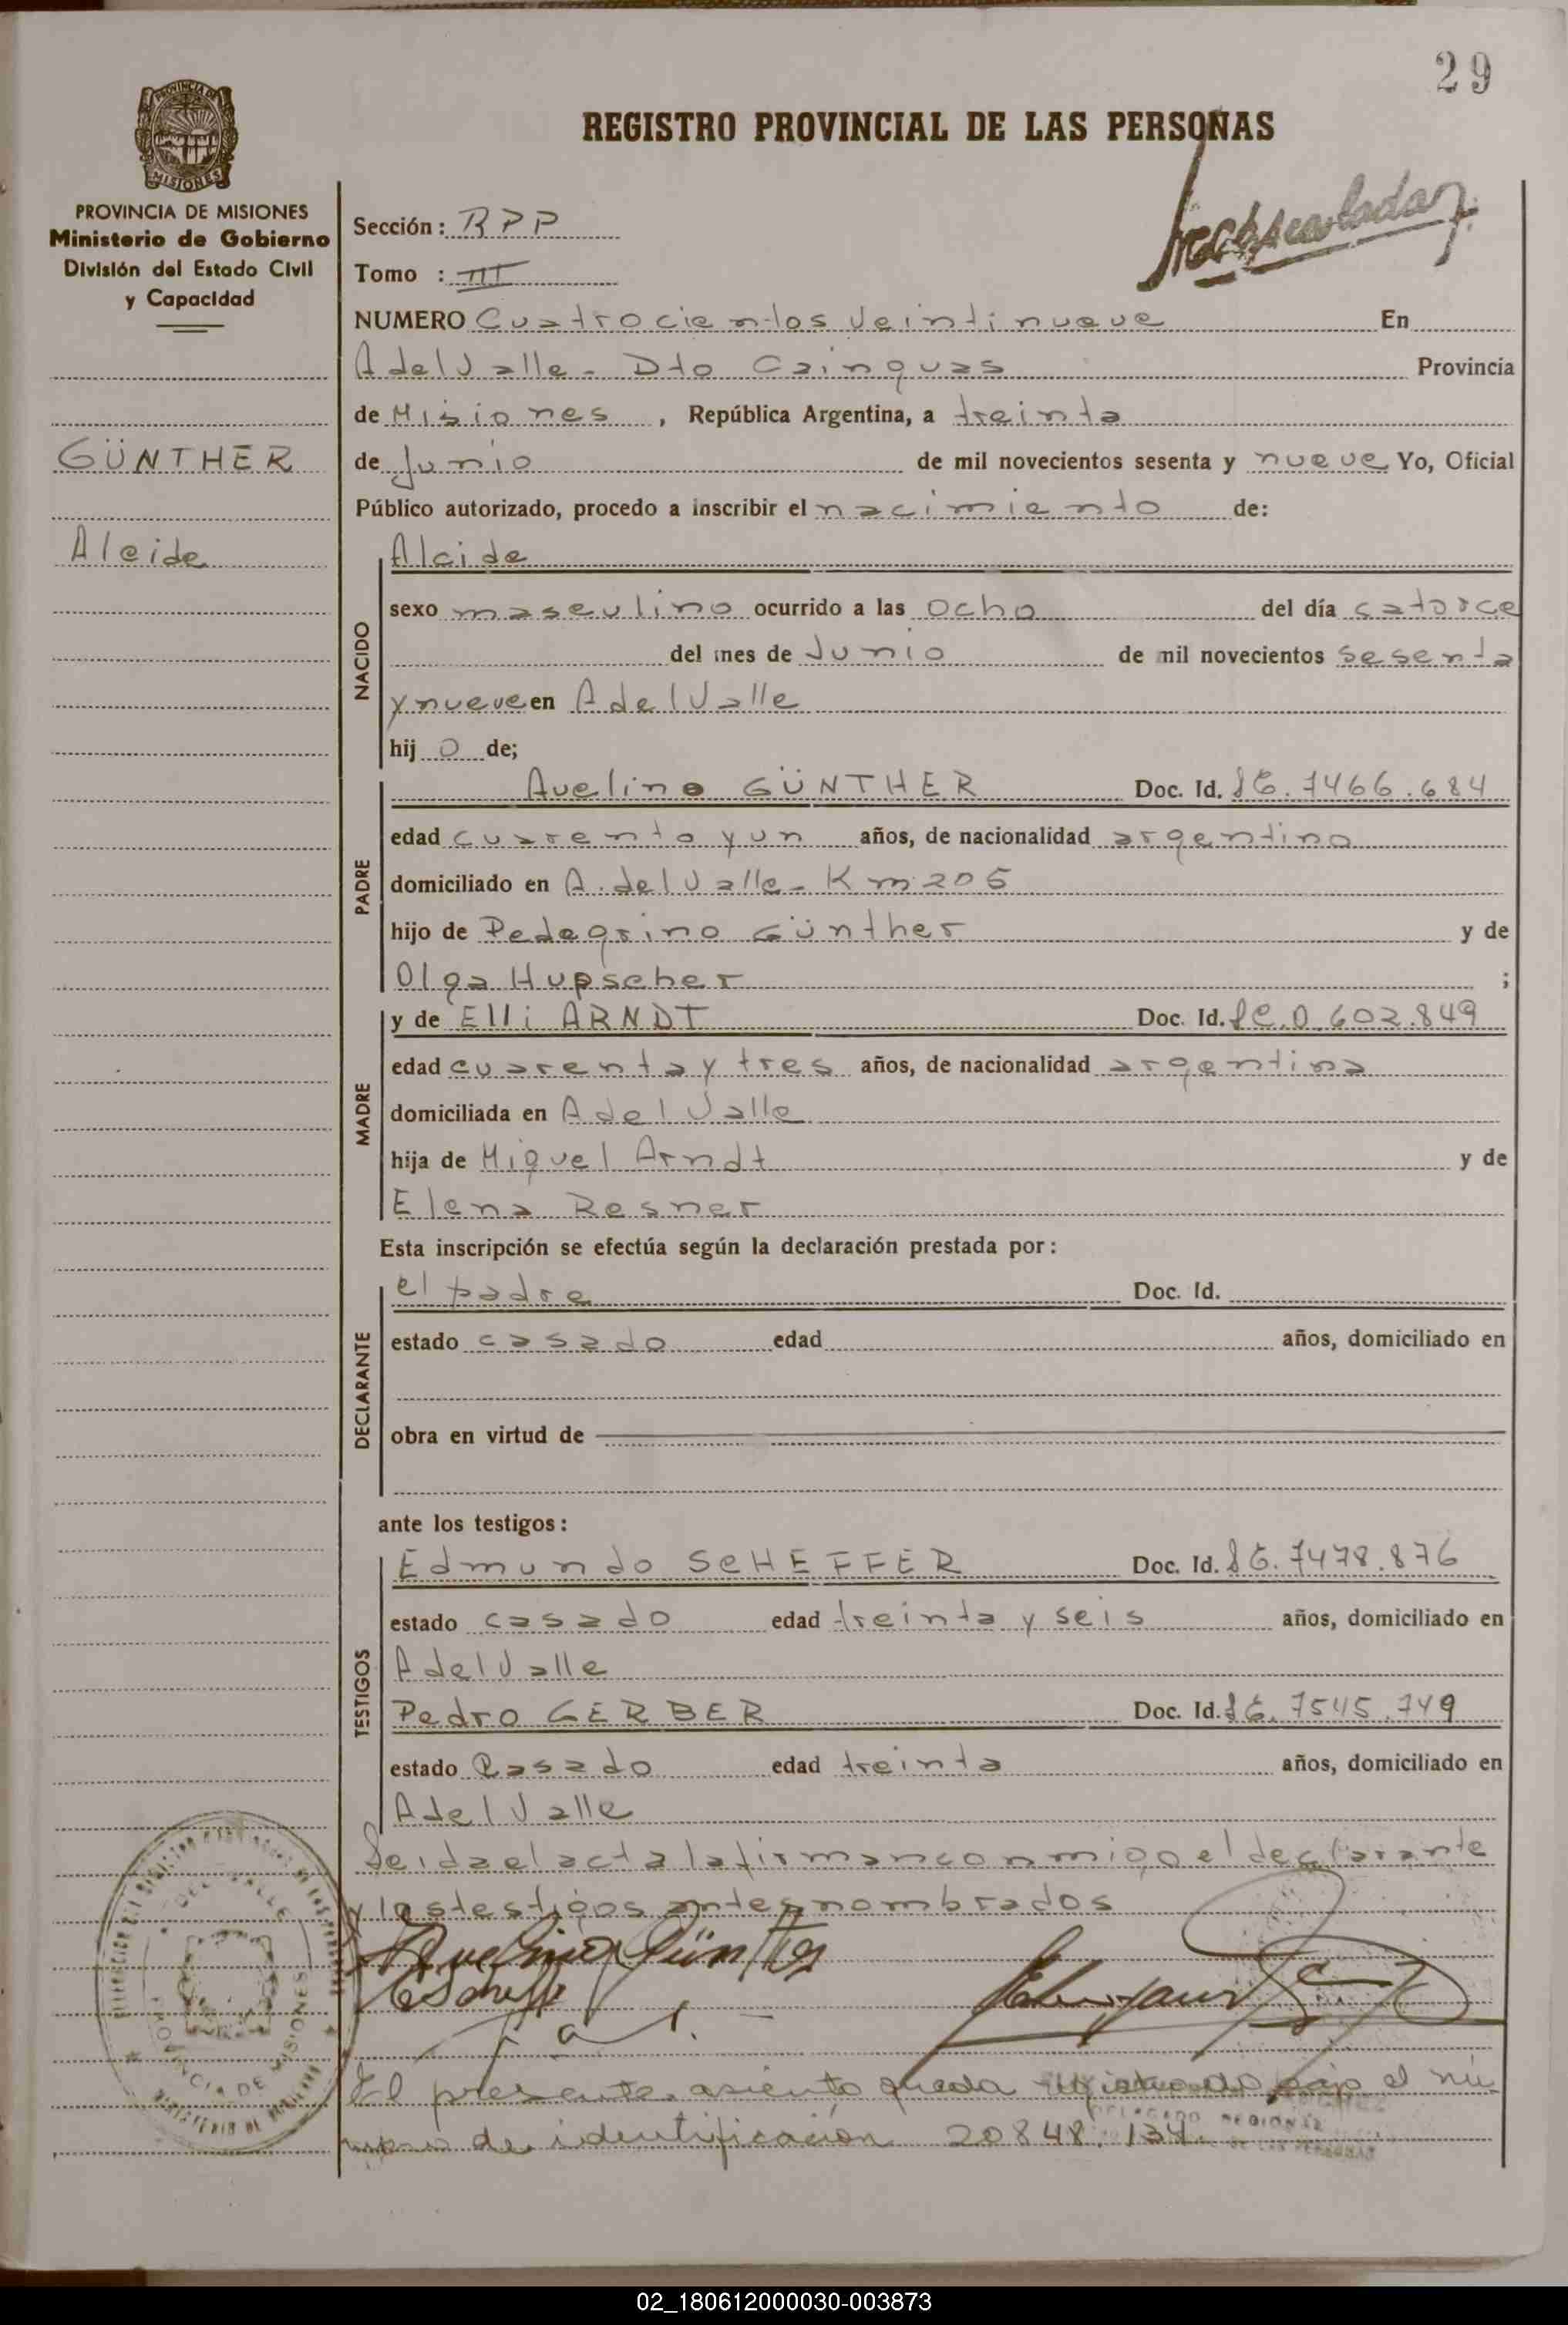 29
REGISTRO PROVINCIAL DE LAS PERSONAS
PROVINCIA DE
MISIONES
PROVINCIA DE MISIONES
Ministerio de Gobierno
División del Estado Civil
y Capacidad
GÜNTHER
Alcide
Sección: RPP
Tomo : III
NUMERO Cuatrocientos veintinueve En
A del Valle - Dto Cainguas Provincia
de Misiones, República Argentina, a treinta
de Junio de mil novecientos sesenta y nueve Yo, Oficial
Público autorizado, procedo a inscribir el nacimiento de:
NACIDO
Alcide
sexo masculino ocurrido a las ocho del día catorce
del mes de Junio de mil novecientos sesenta
y nueve en A del Valle
hij o de;
PADRE
Avelino GÜNTHER Doc. Id. LE. 7466.684
edad cuarenta y un años, de nacionalidad argentino
domiciliado en A. del Valle - Km 205
hijo de Pedegrino Günther y de
Olga Hupscher ;
MADRE
y de Elli ARNDT Doc. Id. LC. 0.602.849
edad cuarenta y tres años, de nacionalidad argentina
domiciliada en A del Valle
hija de Miguel Arndt y de
Elena Resner
Esta inscripción se efectúa según la declaración prestada por:
DECLARANTE
el padre Doc. Id.
estado casado edad años, domiciliado en
obra en virtud de
ante los testigos:
TESTIGOS
Edmundo SCHEFFER Doc. Id. LE. 7478.876
estado casado edad treinta y seis años, domiciliado en
A del Valle
Pedro GERBER Doc. Id. LE. 7545.749
estado Casado edad treinta años, domiciliado en
A del Valle
Leida el acta la firman conmigo el declarante
y los testigos antes nombrados
Avelino Günther
El presente asiento queda bajo el nú
mero de identificación 20848.134.
DELEGADO REGIONAL
DE LAS PERSONAS
PROVINCIA DE MISIONES
02_180612000030-003873